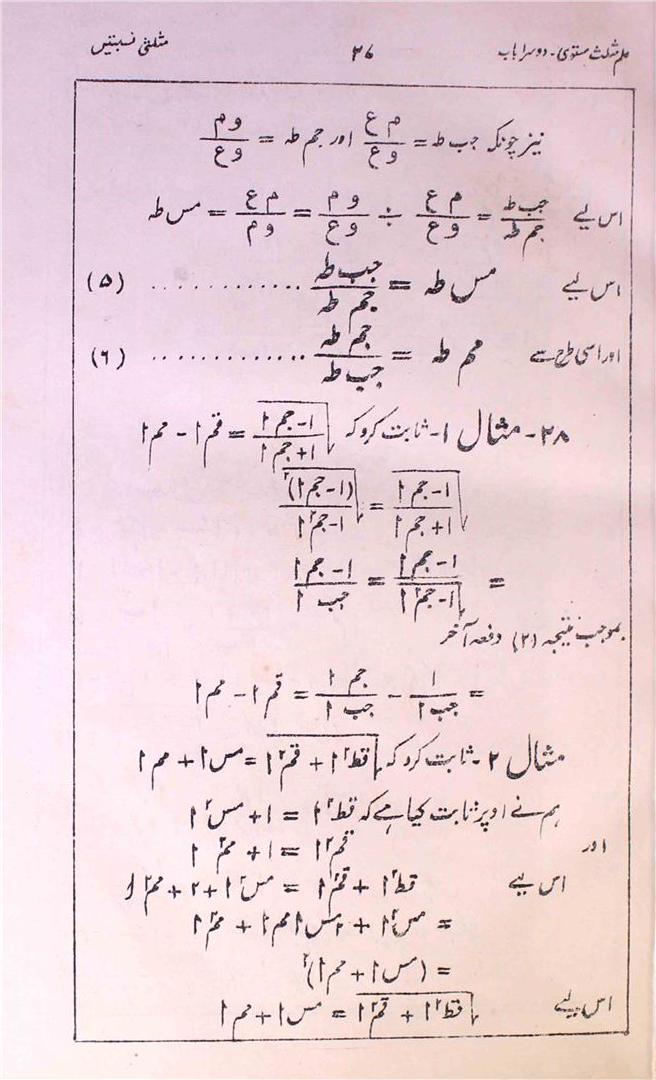 علم مثلث مستوی۔ دوسرا باب ۳۶ مثلثی نسبتیں
نیز چونکہ جب طہ = م ع / و ع اور جم طہ = و م / و ع
اس لیے جب طہ / جم طہ = م ع / و ع ÷ و م / و ع = م ع / و م = مس طہ
اس لیے مس طہ = جب طہ / جم طہ ............ (۵)
اور اسی طرح سے مم طہ = جم طہ / جب طہ ............ (۶)
۲۸۔ مثال ۱۔ ثابت کرو کہ √((۱ - جم ا) / (۱ + جم ا)) = قم ا - مم ا
√((۱ - جم ا) / (۱ + جم ا)) = √((۱ - جم ا)² / (۱ - جم² ا))
= (۱ - جم ا) / √(۱ - جم² ا) = (۱ - جم ا) / جب ا
بموجب نتیجہ (۲) دفعہ آخر
= ۱ / جب ا - جم ا / جب ا = قم ا - مم ا
مثال ۲۔ ثابت کرو کہ √(قط² ا + قم² ا) = مس ا + مم ا
ہم نے اوپر ثابت کیا ہے کہ قط² ا = ۱ + مس² ا
اور قم² ا = ۱ + مم² ا
اس لیے قط² ا + قم² ا = مس² ا + ۲ + مم² ا
= مس² ا + ۲ مس ا مم ا + مم² ا
= (مس ا + مم ا)²
اس لیے √(قط² ا + قم² ا) = مس ا + مم ا